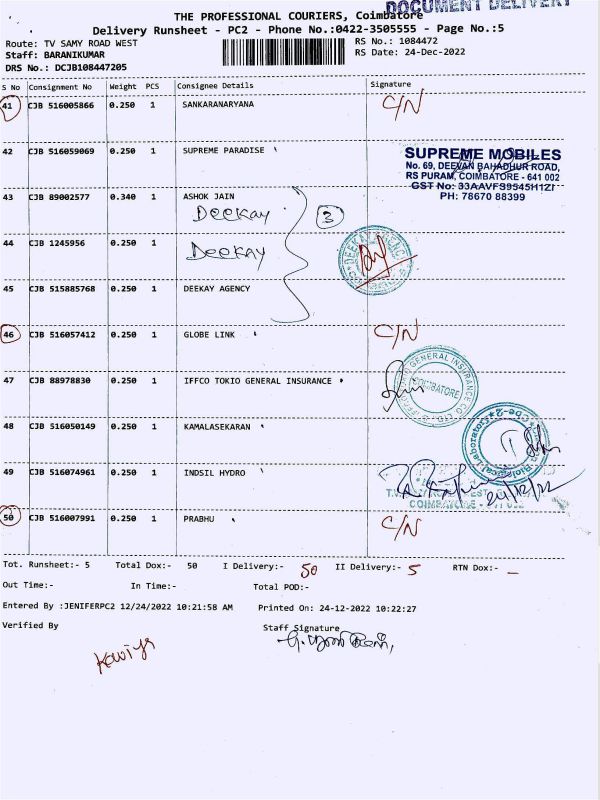 DOCUMENT DELIVERY
THE PROFESSIONAL COURIERS, Coimbatore
Delivery Runsheet - PC2 - Phone No.:0422-3505555 - Page No.:5
Route: TV SAMY ROAD WEST
RS No.: 1084472
Staff: BARANIKUMAR
RS Date: 24-Dec-2022
DRS No.: DCJB108447205
S No Consignment No Weight PCS Consignee Details Signature
41 CJB 516005866 0.250 1 SANKARANARYANA C/N
42 CJB 516059069 0.250 1 SUPREME PARADISE
SUPREME MOBILES
No. 69, DEEVAN BAHADHUR ROAD,
RS PURAM, COIMBATORE - 641 002
GST No: 33AAVFS9545H1ZI
PH: 78670 88399
43 CJB 89002577 0.340 1 ASHOK JAIN
Deekay 3
44 CJB 1245956 0.250 1
Deekay
DEEKAY AGENCY
45 CJB 515885768 0.250 1 DEEKAY AGENCY
46 CJB 516057412 0.250 1 GLOBE LINK C/N
GENERAL INSURANCE CO LTD
COIMBATORE
47 CJB 88978830 0.250 1 IFFCO TOKIO GENERAL INSURANCE
48 CJB 516050149 0.250 1 KAMALASEKARAN
Biological Laboratory Cbe-2
49 CJB 516074961 0.250 1 INDSIL HYDRO
24/12/22
COIMBATORE
50 CJB 516007991 0.250 1 PRABHU C/N
Tot. Runsheet:- 5 Total Dox:- 50 I Delivery:- 50 II Delivery:- 5 RTN Dox:- –
Out Time:- In Time:- Total POD:-
Entered By :JENIFERPC2 12/24/2022 10:21:58 AM Printed On: 24-12-2022 10:22:27
Verified By Staff Signature